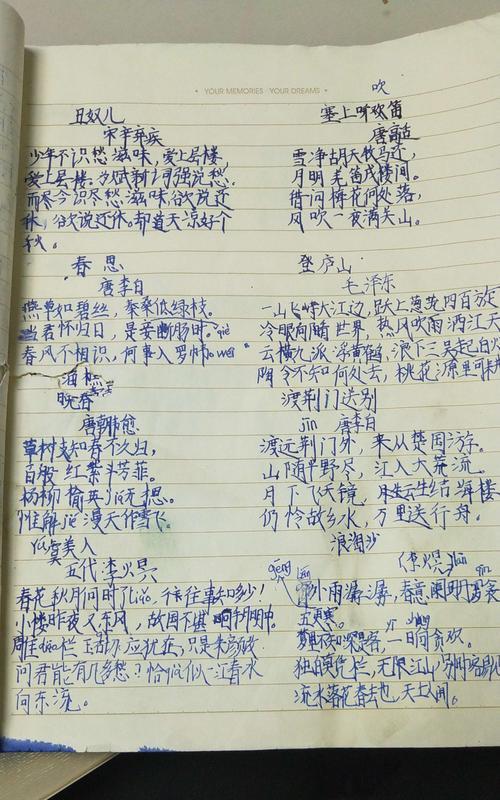 YOUR MEMORIES YOUR DREAMS
丑奴儿
宋辛弃疾
少年不识愁滋味,爱上层楼,
爱上层楼。为赋新词强说愁。
而今识尽愁滋味,欲说还
休,欲说还休。却道天凉好个
秋。
春思
唐李白
燕草如碧丝,秦桑低绿枝。
当君怀归日,是妾断肠时。qiè
春风不相识,何事入罗帏。wei
晚春
唐韩愈
草树知春不久归,
百般红紫斗芳菲。
杨柳榆英jiá无思,
惟解jiě漫天作雪飞。
yú虞美人
五代李煜
春花秋月何时了liǎo,往事知多少!
小楼昨夜又东风,故国不堪
雕diāo栏玉砌应犹在,只是朱颜改
问君能有几多愁?恰似一江春水
向东流。
吹
塞上听吹笛
唐高适
雪净胡天牧马还,
月明羌笛戍楼间。
借问梅花何处落,
风吹一夜满关山。
登庐山
毛泽东
一山飞峙大江边,跃上葱茏四百旋
冷眼向晴世界,热风吹雨洒江天
云横九派浮黄鹤,浪下三吴起白
陶令不知何处去,桃花源里可耕
渡荆门送别
jīn 唐李白
渡远荆门外,来从楚国游。
山随平野尽,江入大荒流
月下飞天镜,云生结海楼
仍怜故乡水,万里送行舟。
浪淘沙
李煜
外雨潺潺,春意阑珊
五更寒。
一日向贪欢。
独自莫凭栏,无限江山,别时容易
流水落花春去也,天上人间。